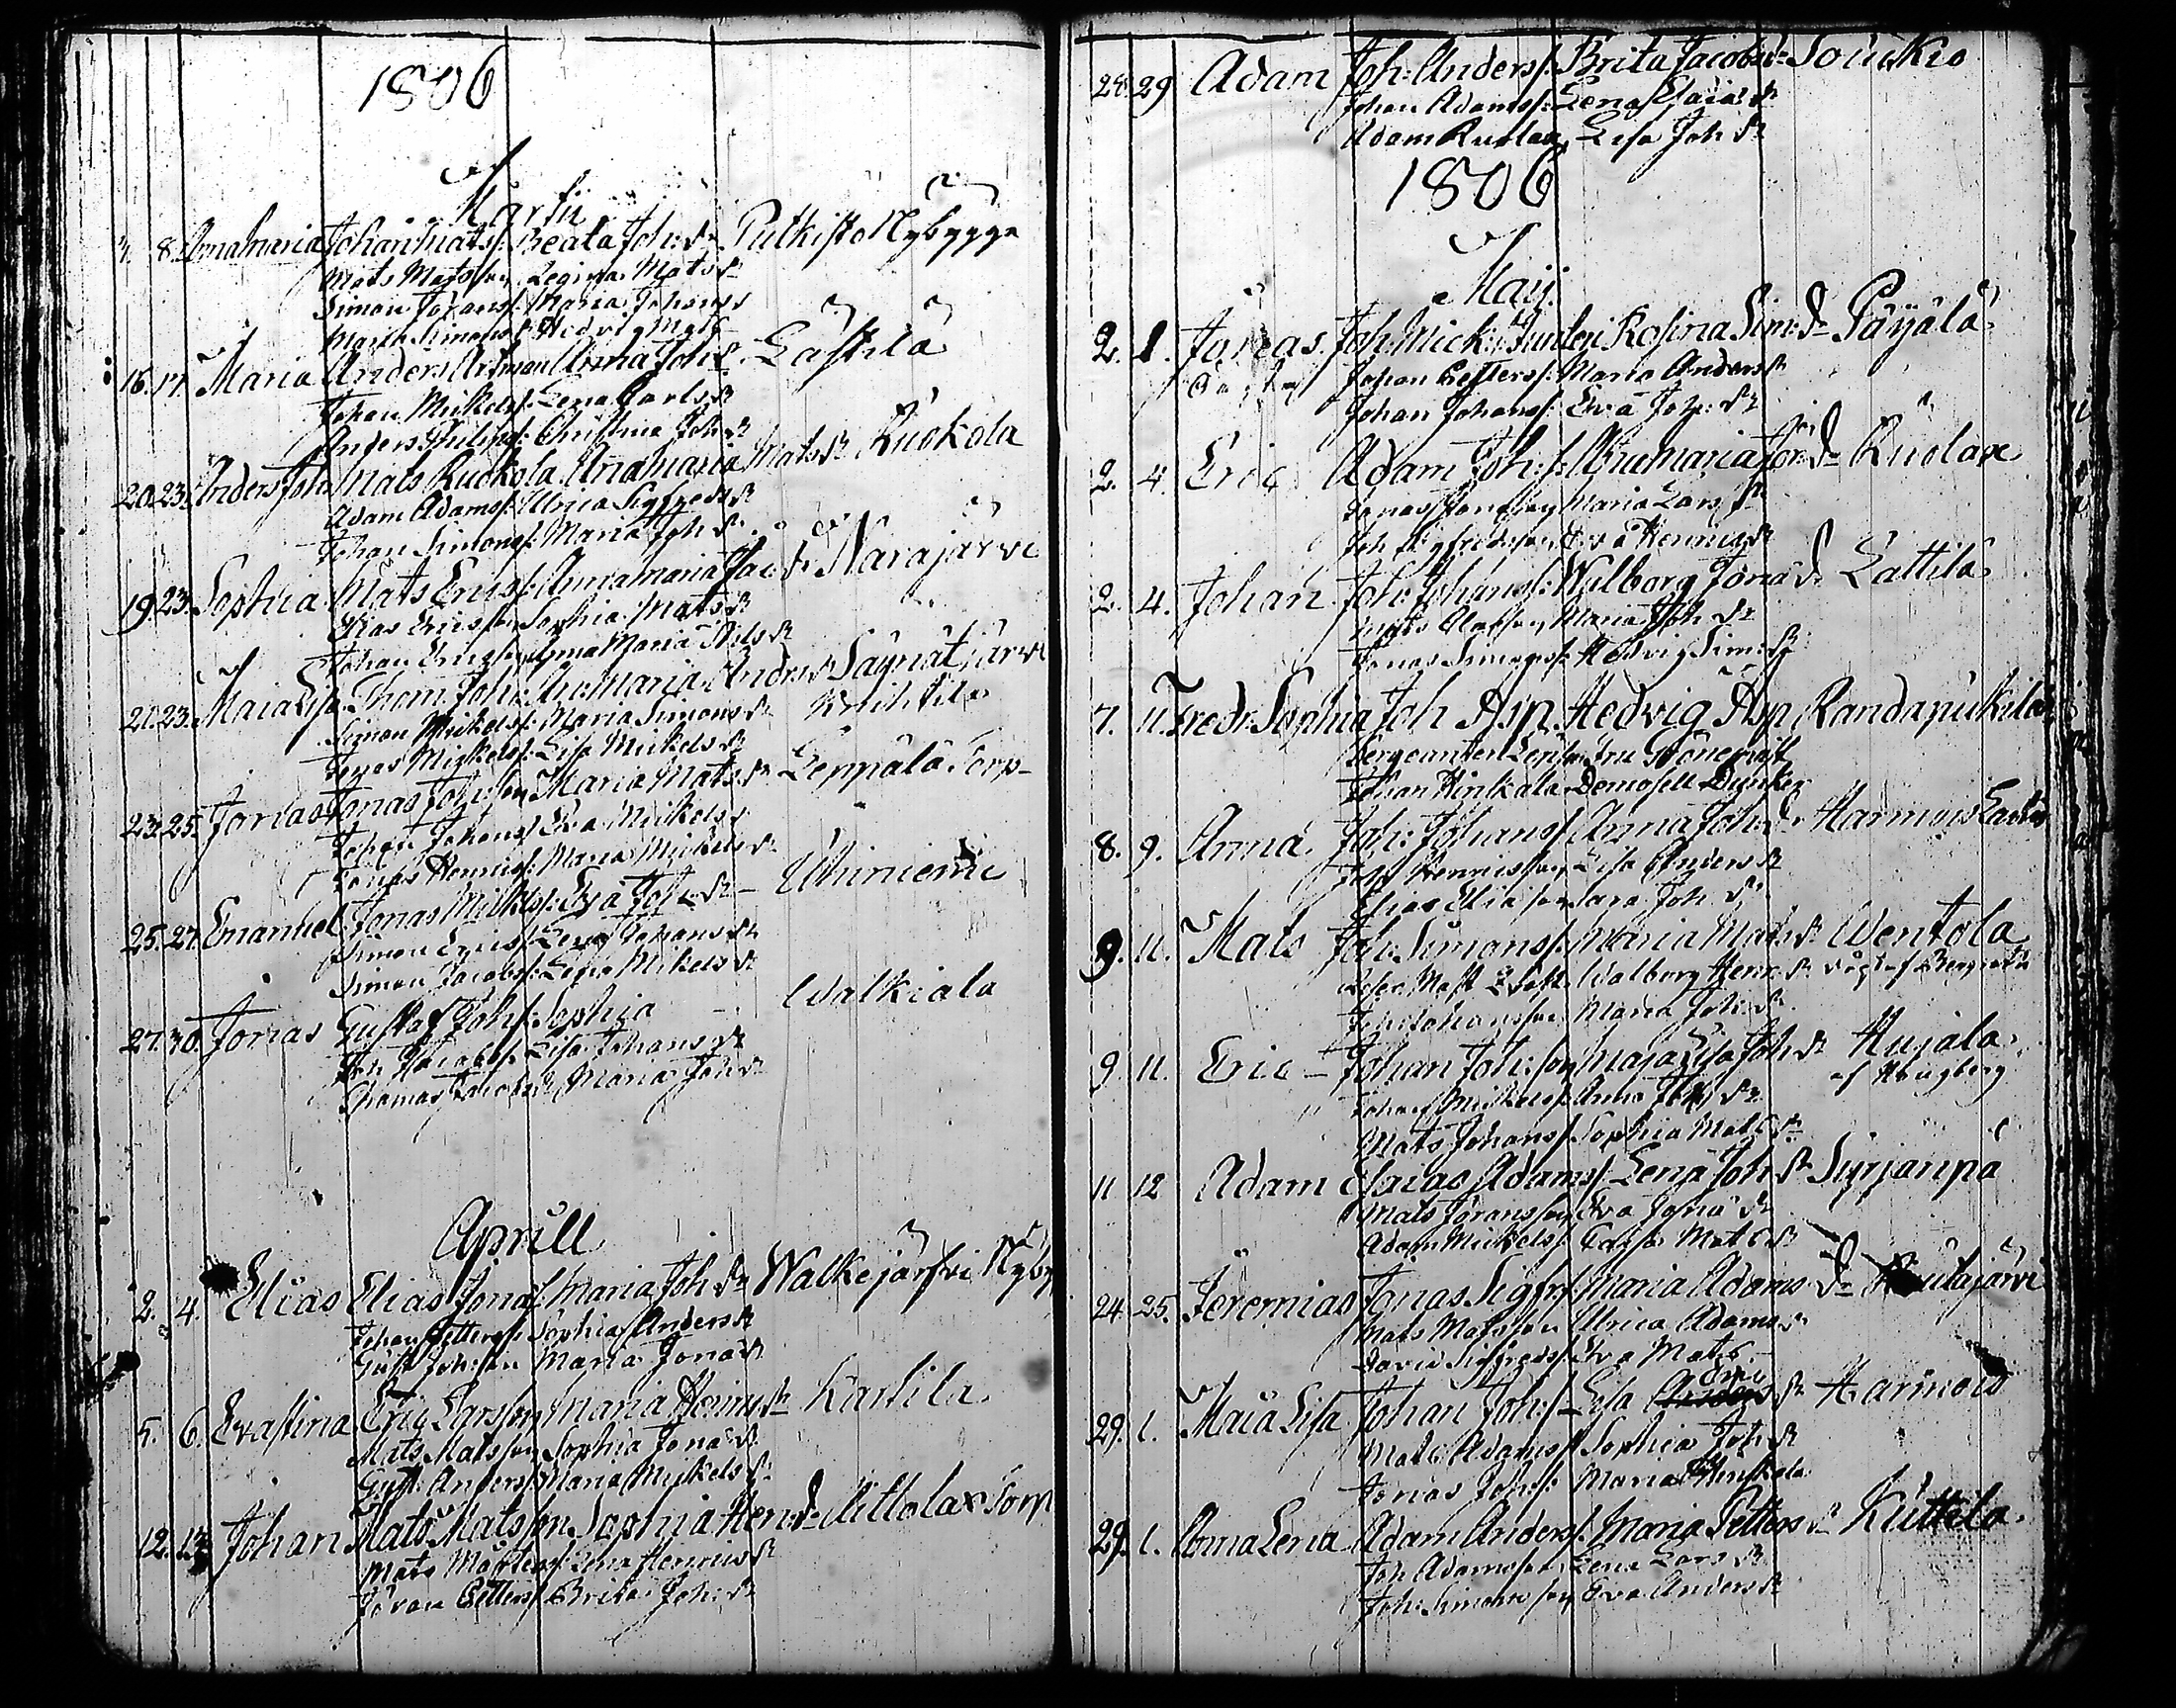 1806
Martii
8. Annamaria Johan Mats/: Beata Joh: dr Putkisto Nybygge
Mats Matsson, Regina Mats dr
Simon Jörans/: Maria Johans
Simons/ Hedvig Mats
16. 17. Maria Anders Anna Joh: dr
Johan Mickels/: Lena Carls dr
Anders Philips/: Christina Joh: dr
20. 23. Anders Joh: Mats Ruokola Annamaria Mats dr Ruokola
Adam Adams/: Ulrica Sigfreds dr
Johan Simons/: Maria Joh dr
19. 23. Sophia Mats Erics/: Annamaria Jac: dr Narajärvi
Elias Ericsson Sophia Mats dr
Johan Ericsson Anna Maria Nils dr
21. 23. Maia Lisa Thom: Joh: An: Maria Anders dr Säynätjärvi
Simon Mickels/: Maria Simons dr
Jonas Mickels/: Lisa Mickels dr
23. 25. Jonas Jonas Joh:son Maria Mats dr Leppälä Torp
Johan Johans/ Eva Mickels
Jonas Hennis/: Maria Mickels dr
25. 27. Emanuel Jonas Mickels/: Eva Joh: dr – Uhiniemi
Simon Erics/: Lena Johans dr
Simon Jacobs/: Lena Mickels dr
27. 30. Jonas Gustaf Joh/: Sophia – Walkiala
Joh Jacobs/: Lisa Johans dr
Thomas Jacobs/: Maria Joh dr
Aprill
2. 4. Elias Elias Jonas/ Maria Joh dr Walkejärfvi Nyby
Johan Petters/: Sophia Anders dr
Gust: Joh:son Maria Jona dr
5. 6. Evastina Eric Larsson Maria Henni dr
Mats Matsson Sophia Jona dr
Gust: Anders/ Maria Mickels dr
12. 13. Johan Mats Matsson Sophia Hen: dr Torp
Mats Lena Hennis dr
Jöran Petters/ Brita Joh: dr
28. 29 Adam Joh: Anders/: Brita Jacobs dr Souckio
Johan Adams/: Lena Esaias dr
Adam Ruolax, Lisa Joh dr
1806
Maij
2. 1. Jonas Joh: Mick: Rosina Sim: dr Päijälä
Johan Petters/: Maria Anders dr
Johan Johans/: Eva Joh: dr
2. 4. Eric Adam Joh:/: Annamaria Jör: dr Ruolax
Jonas Jonasson Maria Lars dr
Joh Sigfredsson Eva Hennis dr
2. 4. Johan Joh: Johans/: Walborg Jona dr Lattila
Mats Olofson Maria Joh dr
Jonas Simons/: Hedvig Sim: dr
7. 11. Fredr: Sophia Joh Asp. Hedvig Asp Randapukila
Sergeanten Fru Grönqvist
Johan Hinkala Demoiselle Dunker
8. 9. Anna. Joh: Johans/ Anna Joh: dr Harmois
Joh Hennisson, Lisa Anders dr
Elias Eliasson Sara Joh. dr
9. 11. Mats Joh: Simons/: Maria Mats dr Wentola
Walborg Henr dr
Joh: Johansson Maria Joh: dr
9 11. Eric – Johan Joh:son Maja Lisa Joh dr Hujala
Johan Mickels/: Anna Joh dr
Mats Johans/: Sophia Mats dr
11 12 Adam Esaias Adams/ Lena Joh dr Syrjänpä
Mats Jöransson Eva Jona dr
Adam Mickels/ Caisa Mats dr
24. 25. Jeremias Jonas Sigfr:/ Maria Adams dr
Mats Matsson Ulrica Adams dr
David Sigfreds/: Eva Mats
Eric
29. 1. Maia Lisa Johan Joh:/: Lisa Anders dr Harmois
Mats Adams/: Sophia Joh dr
Jonas Joh:/: Maria Hinskala
29. 1. Anna Lena Adam Anders/: Maria Petters dr Kuttila
Joh Adamsson Lena Lars dr
Joh: Simonsson Eva Anders dr